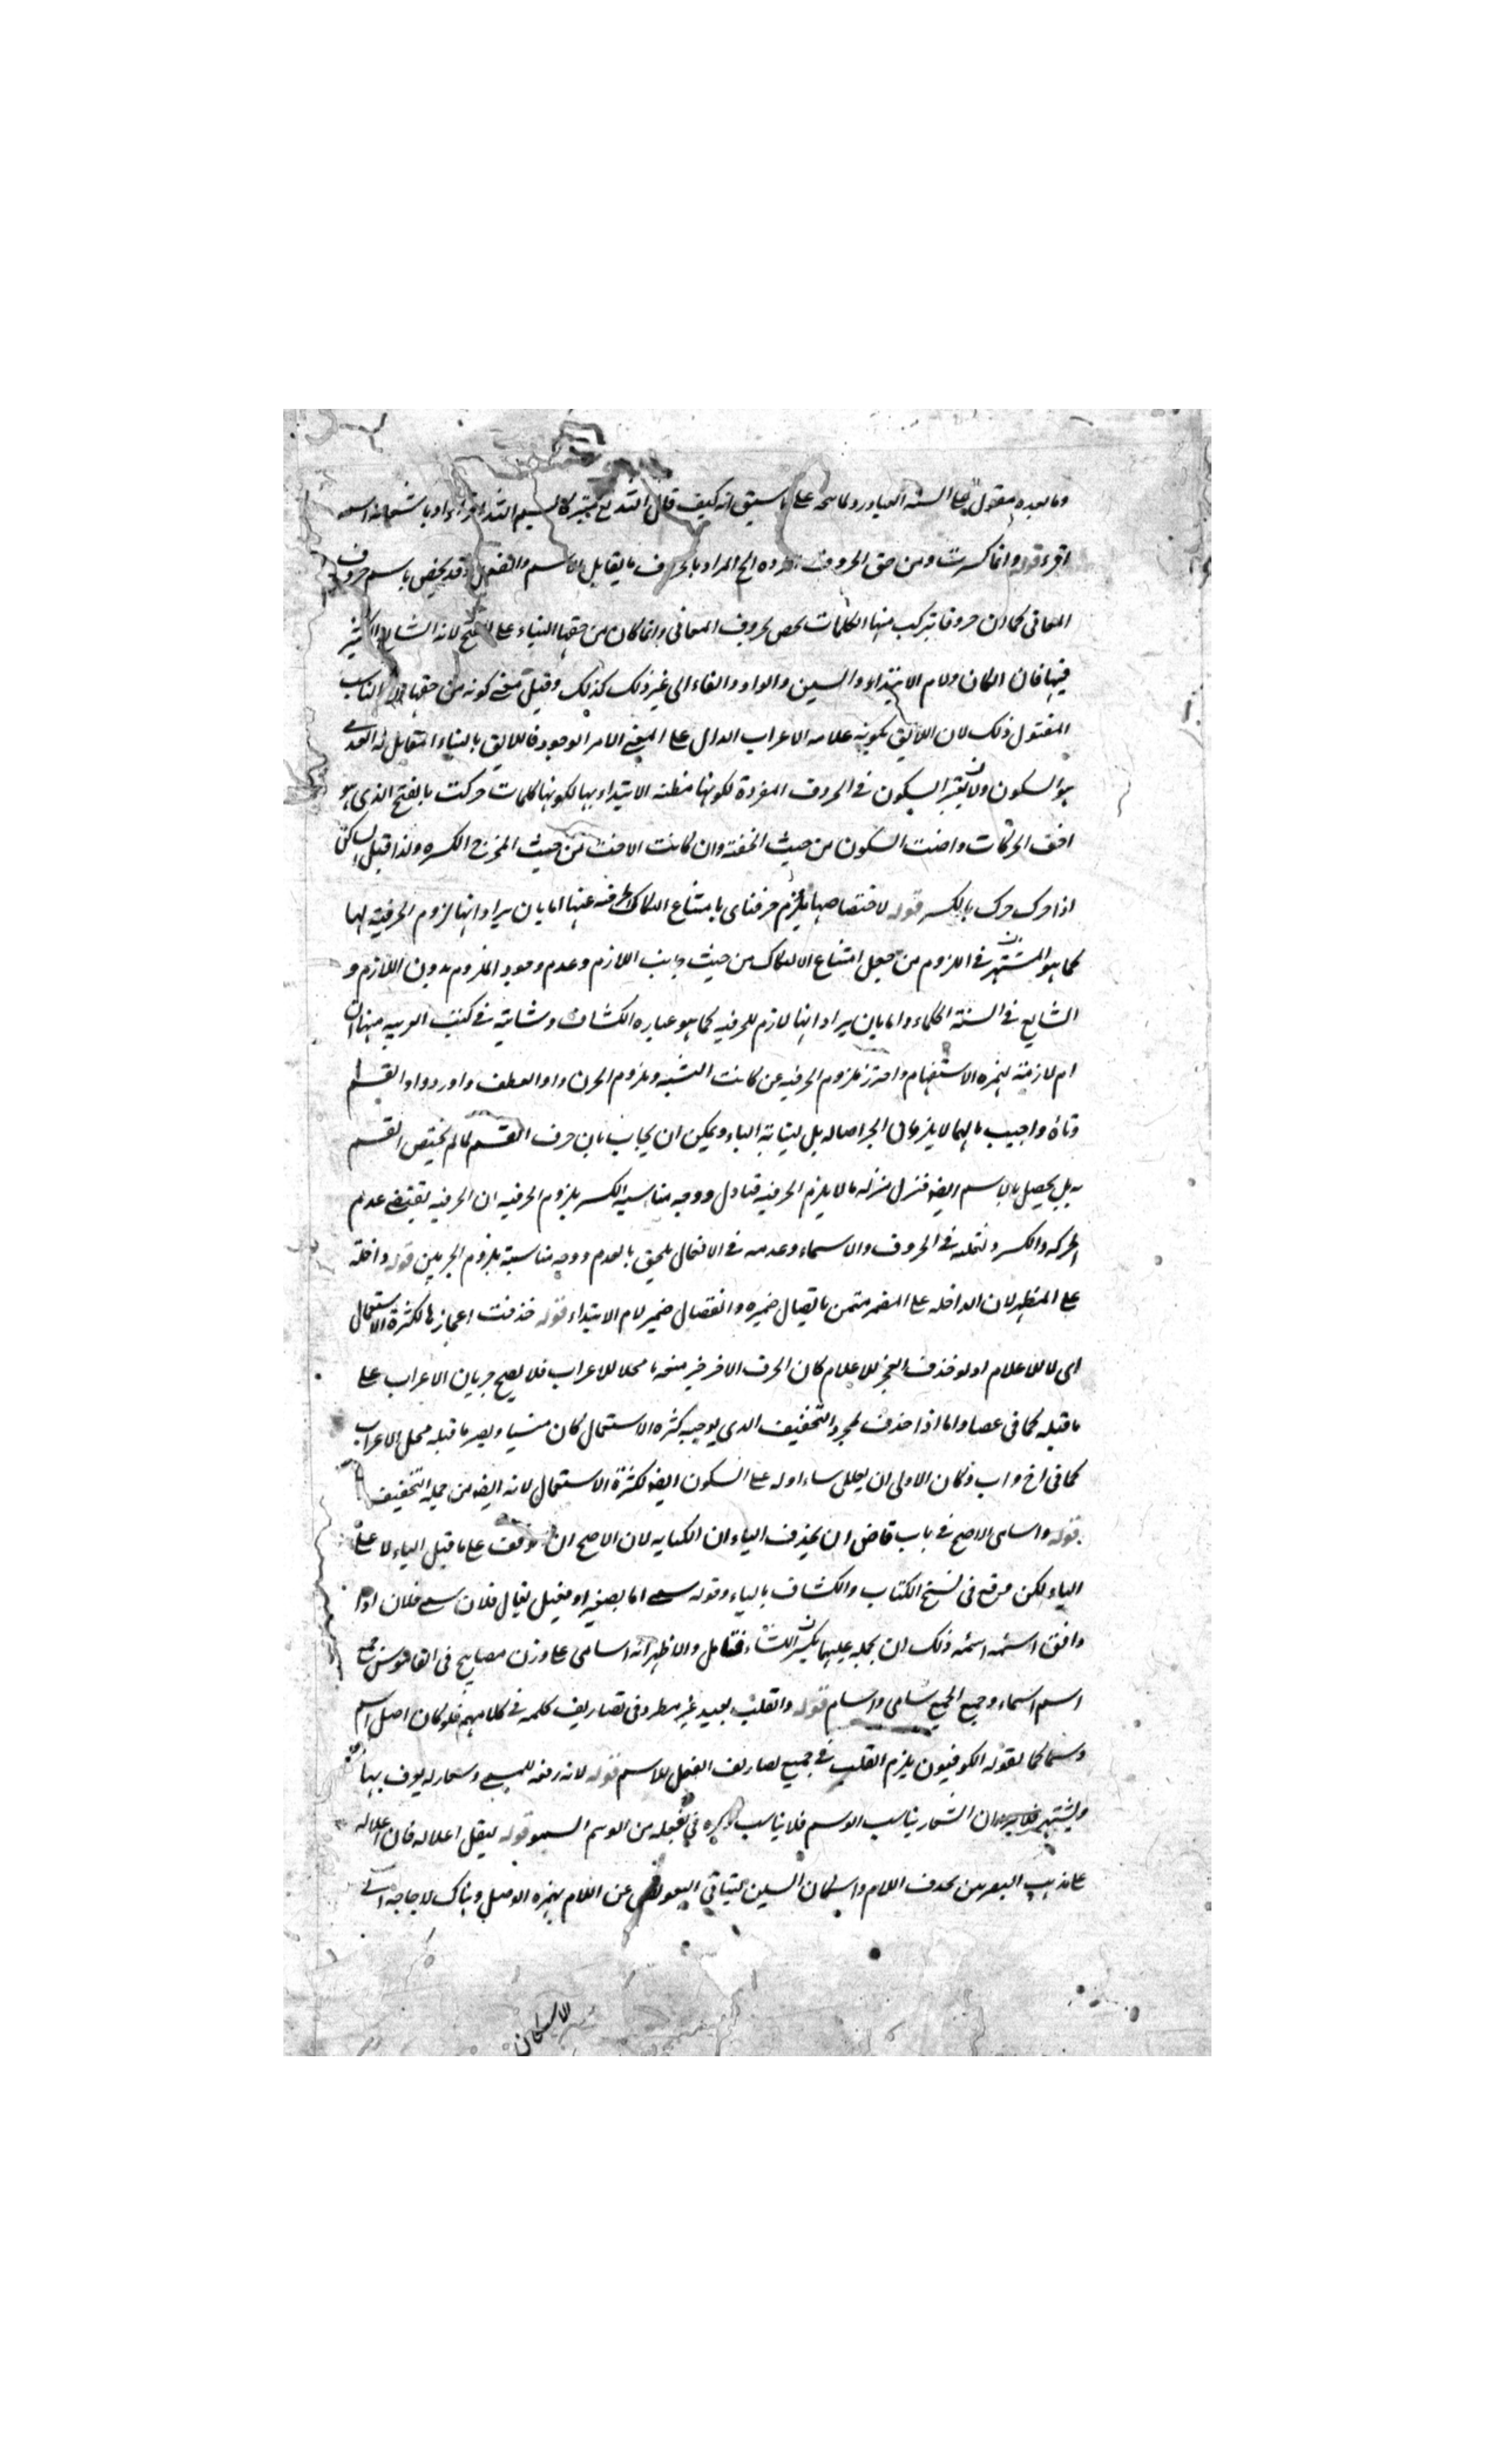 وما بعده مقول على السنة العباد ولما يتجه على ما سبق انه كيف قال الله تع متبركا بسم الله اقرء اراد باسمه
اقرء قوله وانما كسرت ومن حق الحروف المفردة الخ المراد بالحرف ما يقابل الاسم والفعل وقد يخص باسم حروف
المعانى كما ان حروفا تركب منها الكلمات تخص بحروف المبانى وانما كان من حقها البناء على الفتح لانه الشايع الكثير
فيها فان الكاف ولام الابتداء والسين والواو والفاء الى غير ذلك كذلك وقيل معنى كونه من حقها
المفتول ذلك لان اللايق بكونه علامة الاعراب الدال على المعنى الامر الوجود فاللايق بالبناء المقابل له العدمى
هو السكون ولان تعذر السكون فى الحروف المفردة لكونها مظنة الابتداء بها لكونها كلمات حركت بالفتح الذى هو
اخف الحركات واخت السكون من حيث الخفة وان كانت الاخت من حيث المخرج الكسره ولذا قيل الساكن
اذا حرك حرك بالكسر قوله لاختصاصها بلزوم الحرفية اى بامتناع انفكاك الحرفيه عنها اما بان يراد انها لزوم الحرفية لها
كما هو المشتهر فى اللزوم من جعل امتناع الانفكاك من حيث جانب اللازم وعدم وجود الملزوم بدون اللازم و
الشايع فى السنة الحكماء واما بان يراد انها لازم للحرفيه كما هو عباره الكشاف وشايع فى كتب العربيه منها ان
ام لازمة لهمزه الاستفهام واحترز بلزوم الحرفيه عن كاف التشبيه وبلزوم الجر عن واو العطف واورد واو القسم
وتاؤه واجيب بانهما لا يلزمان الجر اصاله بل لنيابة الباء ويمكن ان يجاب بان حرف القسم لما لم يختص القسم
به بل يحصل بالاسم ايضا فنزل منزله ما لا يلزم الحرفيه فتامل ووجه مناسبة الكسر بلزوم الحرفيه ان الحرفيه يقتضى عدم
الحركه والكسر لقلته فى الحروف والاسماء وعدمه فى الافعال يلحق بالعدم ووجه مناسبة بلزوم الجر بين قوله داخلة
على المظهر لان الداخله على المضمر متميز باتصال ضميره وانفصال ضمير لام الابتداء قوله حذفت اعجازها لكثرة الاستعمال
اى لا للاعلال اذ لو حذف العجز للاعلال كان الحرف الاخير محلا للاعراب فلا يصح جريان الاعراب على
ما قبله كما فى عصا واما اذا حذف لمجرد التخفيف الذى يوجبه كثرة الاستعمال كان منسيا ويصير ما قبله محل الاعراب
كما فى اخ واب وكان الاولى ان يعلل بناء اوله على السكون ايضا لكثرة الاستعمال لانه ايضا من جملة التخفيف
قوله واسامى الاصح فى باب قاض ان يحذف الياء ان الكتابه لان الاصح ان توقف على ما قبل الياء لا على
الياء لكن وقع فى نسخ الكتاب والكشاف بالياء وقوله سمى اما تصغير او فعيل يقال فلان سمى فلان اذا
وافق اسمه اسمه ذلك ان يحمله عليهما فتامل والاظهر انه اسامى على وزن مصابيح فى القاموس جمع
اسم اسماء وجمع الجمع اسامى واسام قوله والقلب بعيد غير مطرد فى تصاريف كلمه فى كلامهم فلو كان اصل اسم
وسما كما يقوله الكوفيون يلزم القلب فى جميع تصاريف الفعل للاسم قوله لانه رفعه للمسمى وشعار له يعرف بها
ويشتهر ان الشعار يناسب الوسم فلا يناسب ذكره فى تعجيله من الوسم السمو قوله ليقل اعلاله فان اعلاله
على مذهب البصريين بحذف اللام واسكان السين ليتاتى التعويض عن اللام بهمزه الوصل وهناك لا حاجه الى
الاسكان